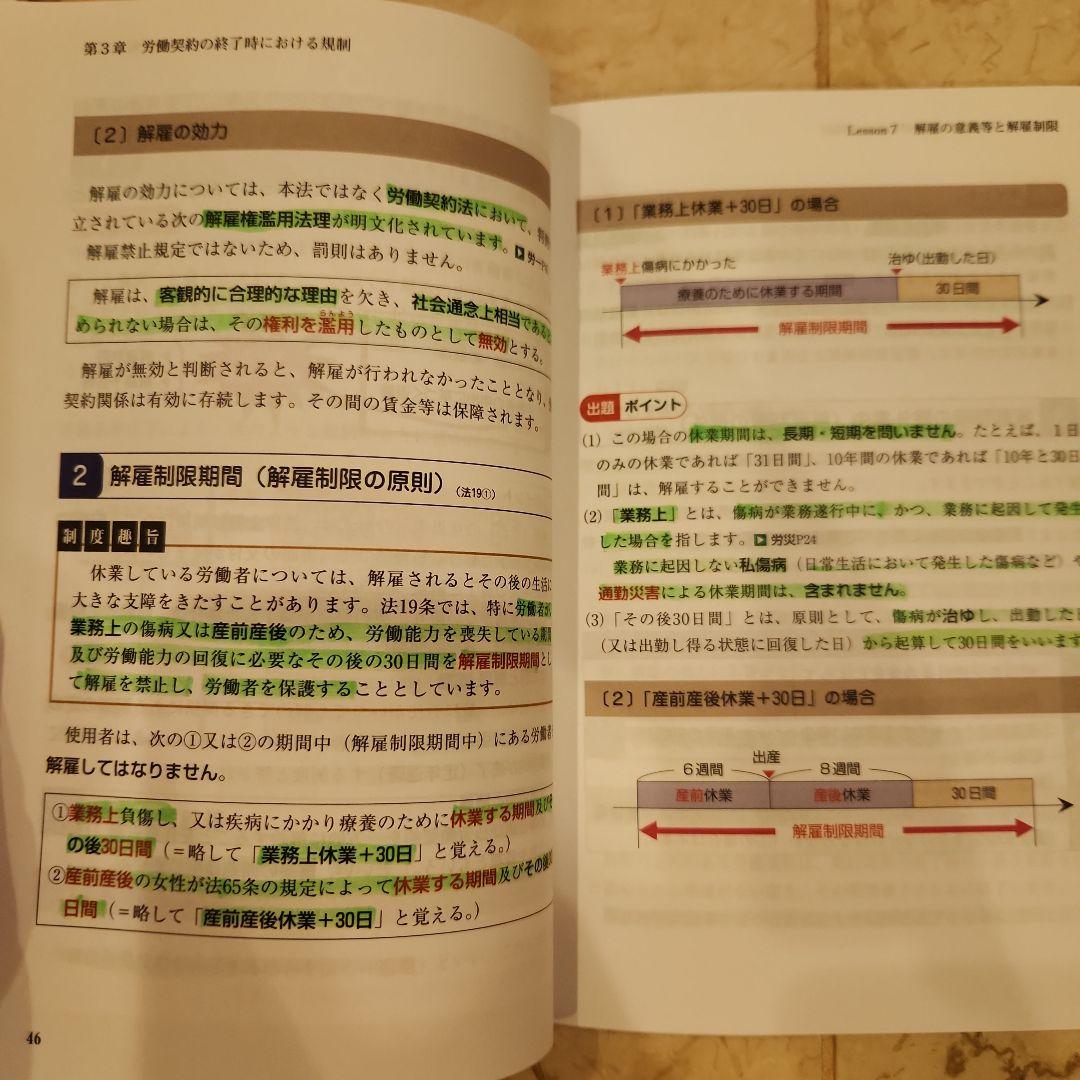 第3章 労働契約の終了時における規制
〔2〕解雇の効力
解雇の効力については、本法ではなく労働契約法において、判例
立されている次の解雇権濫用法理が明文化されています。▶労一P
解雇禁止規定ではないため、罰則はありません。
解雇は、客観的に合理的な理由を欠き、社会通念上相当であると
められない場合は、その権利を濫用したものとして無効とする。
らんよう
解雇が無効と判断されると、解雇が行われなかったこととなり、
契約関係は有効に存続します。その間の賃金等は保障されます。
2 解雇制限期間（解雇制限の原則）（法19①）
制度趣旨
休業している労働者については、解雇されるとその後の生活に
大きな支障をきたすことがあります。法19条では、特に労働者が
業務上の傷病又は産前産後のため、労働能力を喪失している期間
及び労働能力の回復に必要なその後の30日間を解雇制限期間とし
て解雇を禁止し、労働者を保護することとしています。
使用者は、次の①又は②の期間中（解雇制限期間中）にある労働者
解雇してはなりません。
①業務上負傷し、又は疾病にかかり療養のために休業する期間及びそ
の後30日間（＝略して「業務上休業＋30日」と覚える。）
②産前産後の女性が法65条の規定によって休業する期間及びその後
日間（＝略して「産前産後休業＋30日」と覚える。）
46
Lesson 7 解雇の意義等と解雇制限
〔1〕「業務上休業＋30日」の場合
業務上傷病にかかった 治ゆ（出勤した日）
療養のために休業する期間 30日間
解雇制限期間
出題 ポイント
(1) この場合の休業期間は、長期・短期を問いません。たとえば、1日
のみの休業であれば「31日間」、10年間の休業であれば「10年と30日
間」は、解雇することができません。
(2)「業務上」とは、傷病が業務遂行中に、かつ、業務に起因して発生
した場合を指します。▶労災P24
業務に起因しない私傷病（日常生活において発生した傷病など）や
通勤災害による休業期間は、含まれません。
(3)「その後30日間」とは、原則として、傷病が治ゆし、出勤した日
（又は出勤し得る状態に回復した日）から起算して30日間をいいます
〔2〕「産前産後休業＋30日」の場合
出産
6週間 8週間
産前休業 産後休業 30日間
解雇制限期間